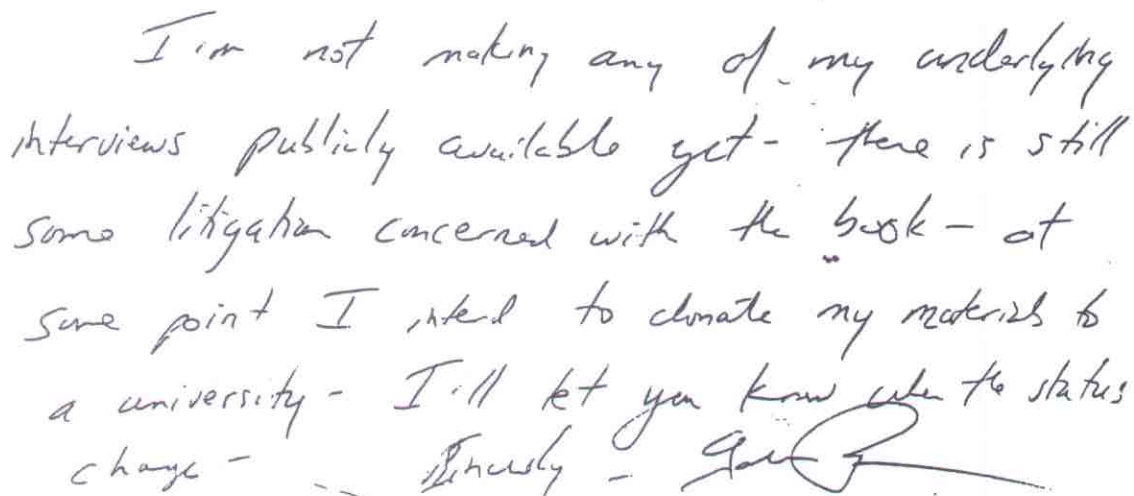 I'm not making any of my underlying
interviews publicly available yet - there is still
some litigation concerned with the book - at
some point I intend to donate my materials to
a university - I'll let you know when the status
change - Sincerely -